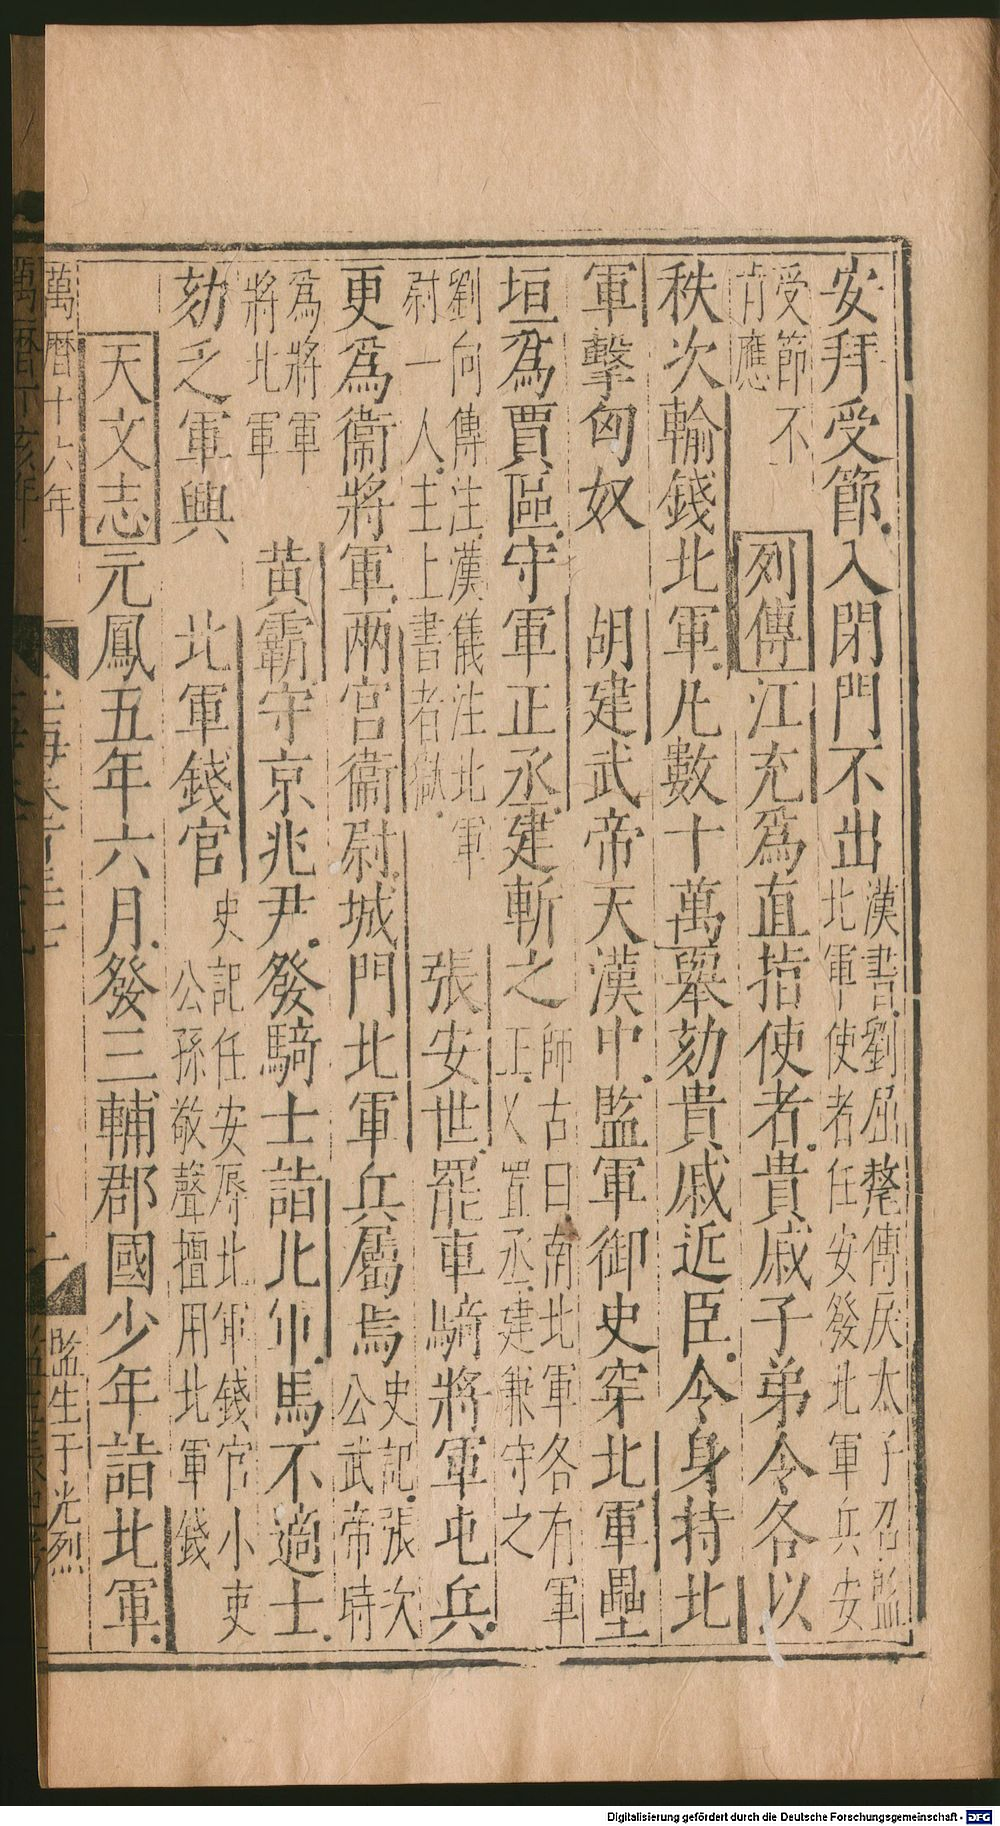 安拜受節入閉門不出漢書劉屈氂傳戾太子召監北軍使者任安發北軍兵安
受節不肯應 列傳江充爲直指使者貴戚子弟令各以
秩次輸錢北軍凡數十萬舉劾貴戚近臣令身持北
軍擊匈奴 胡建武帝天漢中監軍御史穿北軍壘
垣爲賈區守軍正丞建斬之師古曰南北軍各有軍正又置丞建兼守之
劉向傳注漢儀注北軍尉一人主上書者獄 張安世罷車騎將軍屯兵
更爲衞將軍兩宮衞尉城門北軍兵屬焉史記張次公武帝時
爲將軍將北軍 黃霸守京兆尹發騎士詣北軍馬不適士
劾乏軍興 北軍錢官史記任安辱北軍錢官小吏公孫敬聲擅用北軍錢
天文志元鳳五年六月發三輔郡國少年詣北軍
萬曆十六年 監生于光烈
Digitalisierung gefördert durch die Deutsche Forschungsgemeinschaft - DFG